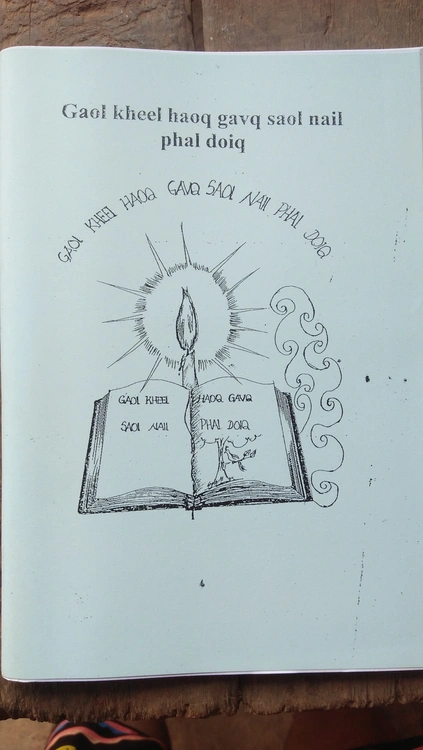 Gaol kheel haoq gavq saol nail
phal doiq
GAOL KHEEL HAOQ GAVQ SAOL NAIL PHAL DOIQ
GAOL KHEEL HAOQ GAVQ
SAOL NAIL PHAL DOIQ